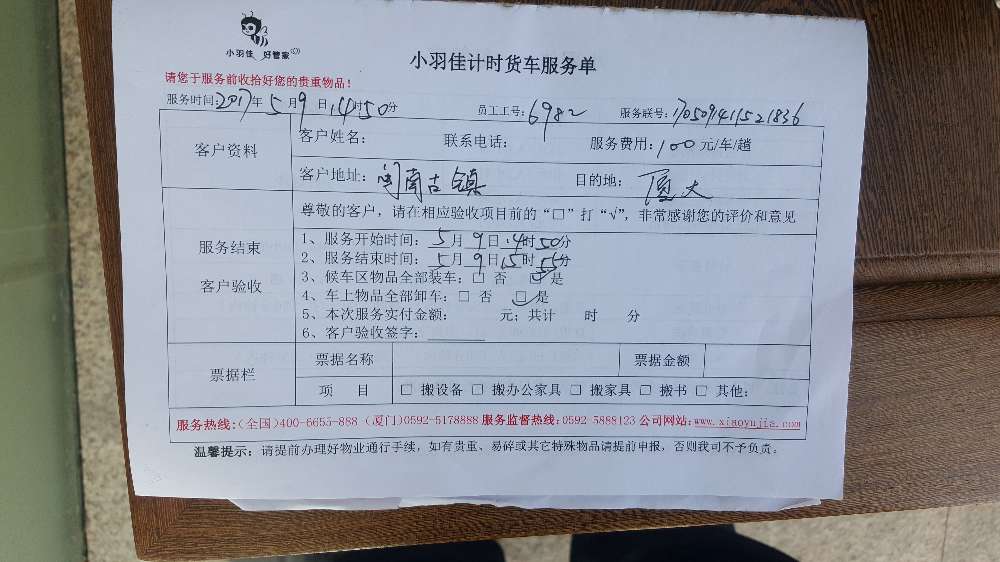 小羽佳 好管家
小羽佳计时货车服务单
请您于服务前收拾好您的贵重物品！
服务时间：2017年 5 月 9 日 14时50分 员工工号：6982 服务联号：
客户资料
客户姓名： 联系电话： 服务费用：100 元/车/趟
客户地址：闽南古镇 目的地：厦大
尊敬的客户，请在相应验收项目前的“□”打“√”，非常感谢您的评价和意见
服务结束
客户验收
1、服务开始时间：5月 9 日 14时50分
2、服务结束时间：5月 9 日15时55分
3、候车区物品全部装车：□ 否 □是
4、车上物品全部卸车：□ 否 □是
5、本次服务实付金额： 元；共计 时 分
6、客户验收签字：
票据栏
票据名称 票据金额
项 目 □ 搬设备 □ 搬办公家具 □ 搬家具 □ 搬书 □ 其他：
服务热线：（全国）400-6655-888（厦门）0592-5178888 服务监督热线：0592-5888123 公司网站：www.xiaoyujia.com
温馨提示：请提前办理好物业通行手续，如有贵重、易碎或其它特殊物品请提前申报，否则我司不予负责。